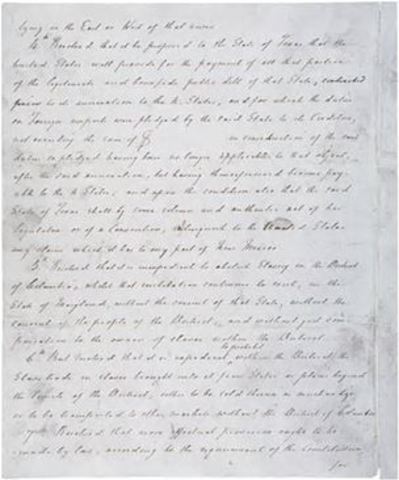 lying on the East or West of that river.
4th. Resolved that it be proposed to the State of Texas that the
United States will provide for the payment of all that portion
of the legitimate and bonafide public debt of that State, contracted
prior to its annexation to the U. States, and for which the duties
on foreign imports were pledged by the said State to its Creditors,
not exceeding the sum of $ in consideration of the said
duties so pledged having been no longer applicable to that object,
after the said annexation, but having thenceforward become pay-
able to the U. States; and upon the condition also that the said
State of Texas shall by some solemn and authentic act of her
Legislature or of a Convention, relinquish to the United States
any claim which it has to any part of New Mexico.
5th. Resolved that it is inexpedient to abolish Slavery in the District
of Columbia, whilst that institution continues to exist in the
State of Maryland, without the consent of that State, without the
consent of the people of the District, and without just com-
pensation to the owners of slaves within the District.
6th. But Resolved that it is expedient to prohibit within the District the
Slave trade in slaves brought into it from States or places beyond
the limits of the District, either to be sold therein as merchandize,
or to be transported to other markets without the District of Columbia
7th. Resolved that more effectual provision ought to be
made by law, according to the requirement of the Constitution
for